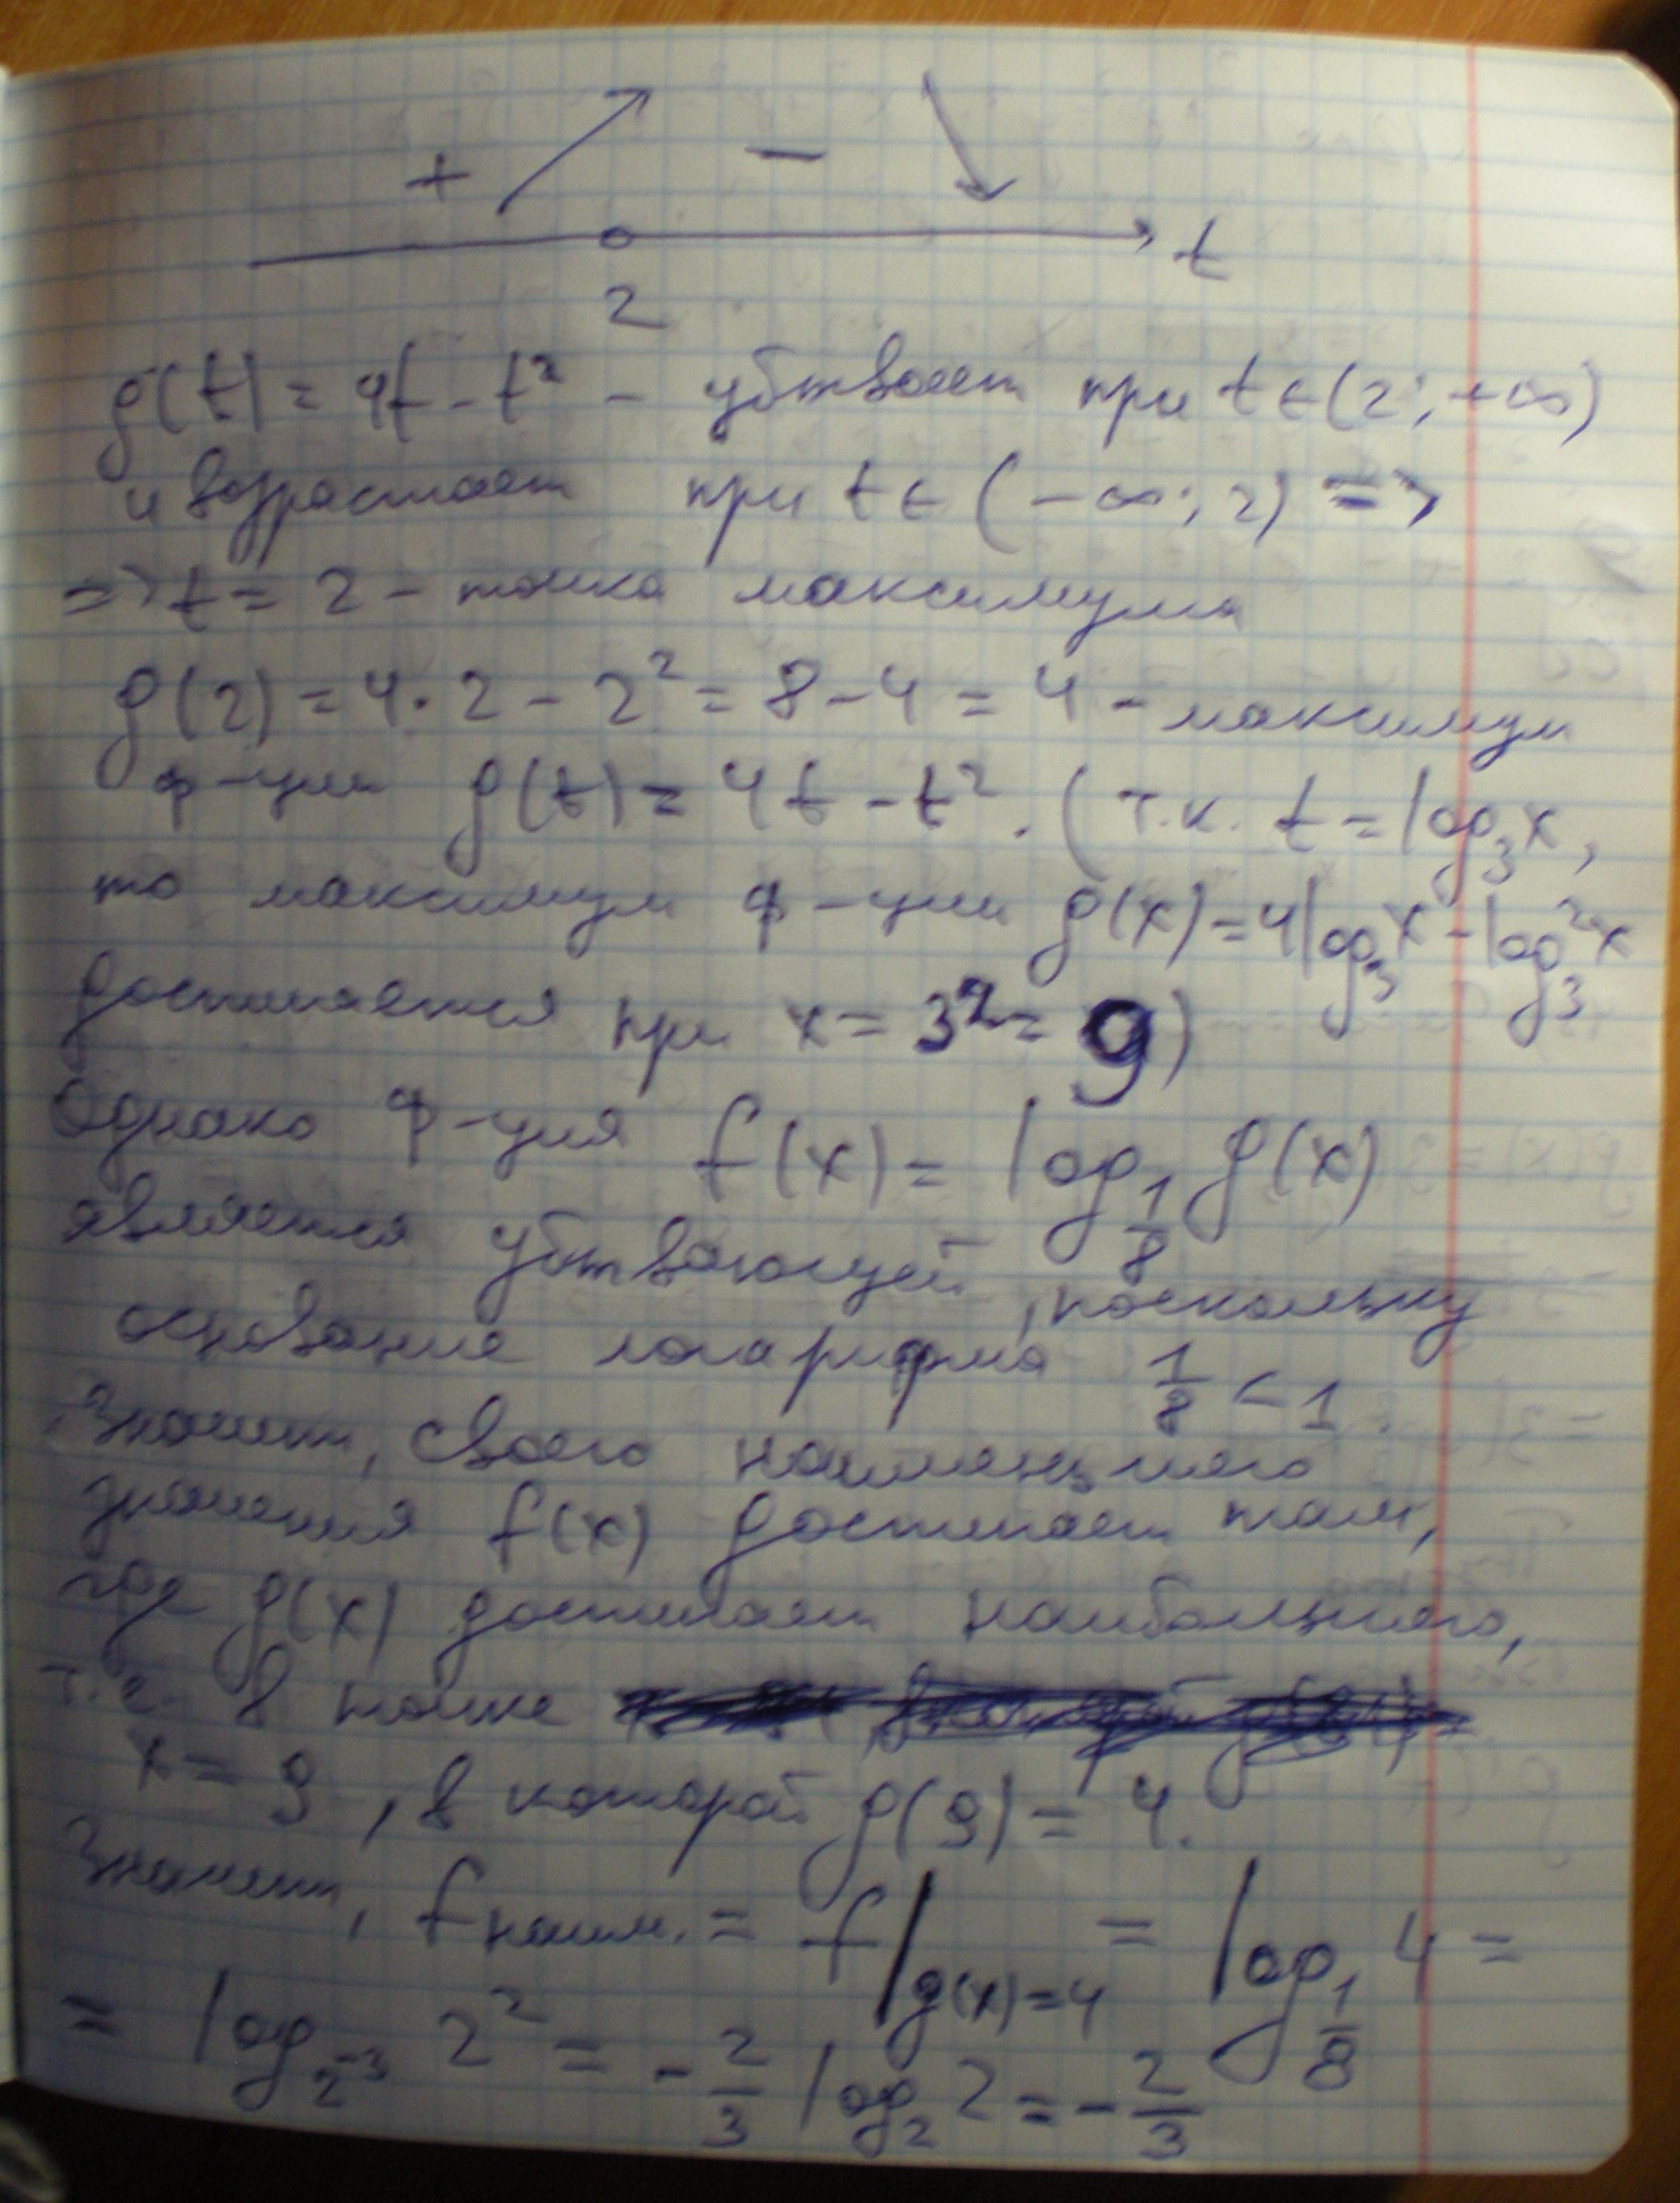 + −
t
2
g(t) = 4t - t² - убывает при t ∈ (2; +∞)
и возрастает при t ∈ (-∞; 2) =>
=> t = 2 - точка максимума
g(2) = 4·2 - 2² = 8 - 4 = 4 - максимум
ф-ции g(t) = 4t - t². (т.к. t = log₃x,
то максимум ф-ции g(x) = 4log₃x - log₃²x
достигается при x = 3² = 9)
Однако ф-ция f(x) = log_{1/8} g(x)
является убывающей, поскольку
основание логарифма 1/8 < 1.
Значит, своего наименьшего
значения f(x) достигает там,
где g(x) достигает наибольшего,
т.е. в точке
x = 9, в которой g(9) = 4.
Значит, fнаим. = f|_{g(x)=4} = log_{1/8} 4 =
= log_{2⁻³} 2² = -2/3 log₂2 = -2/3